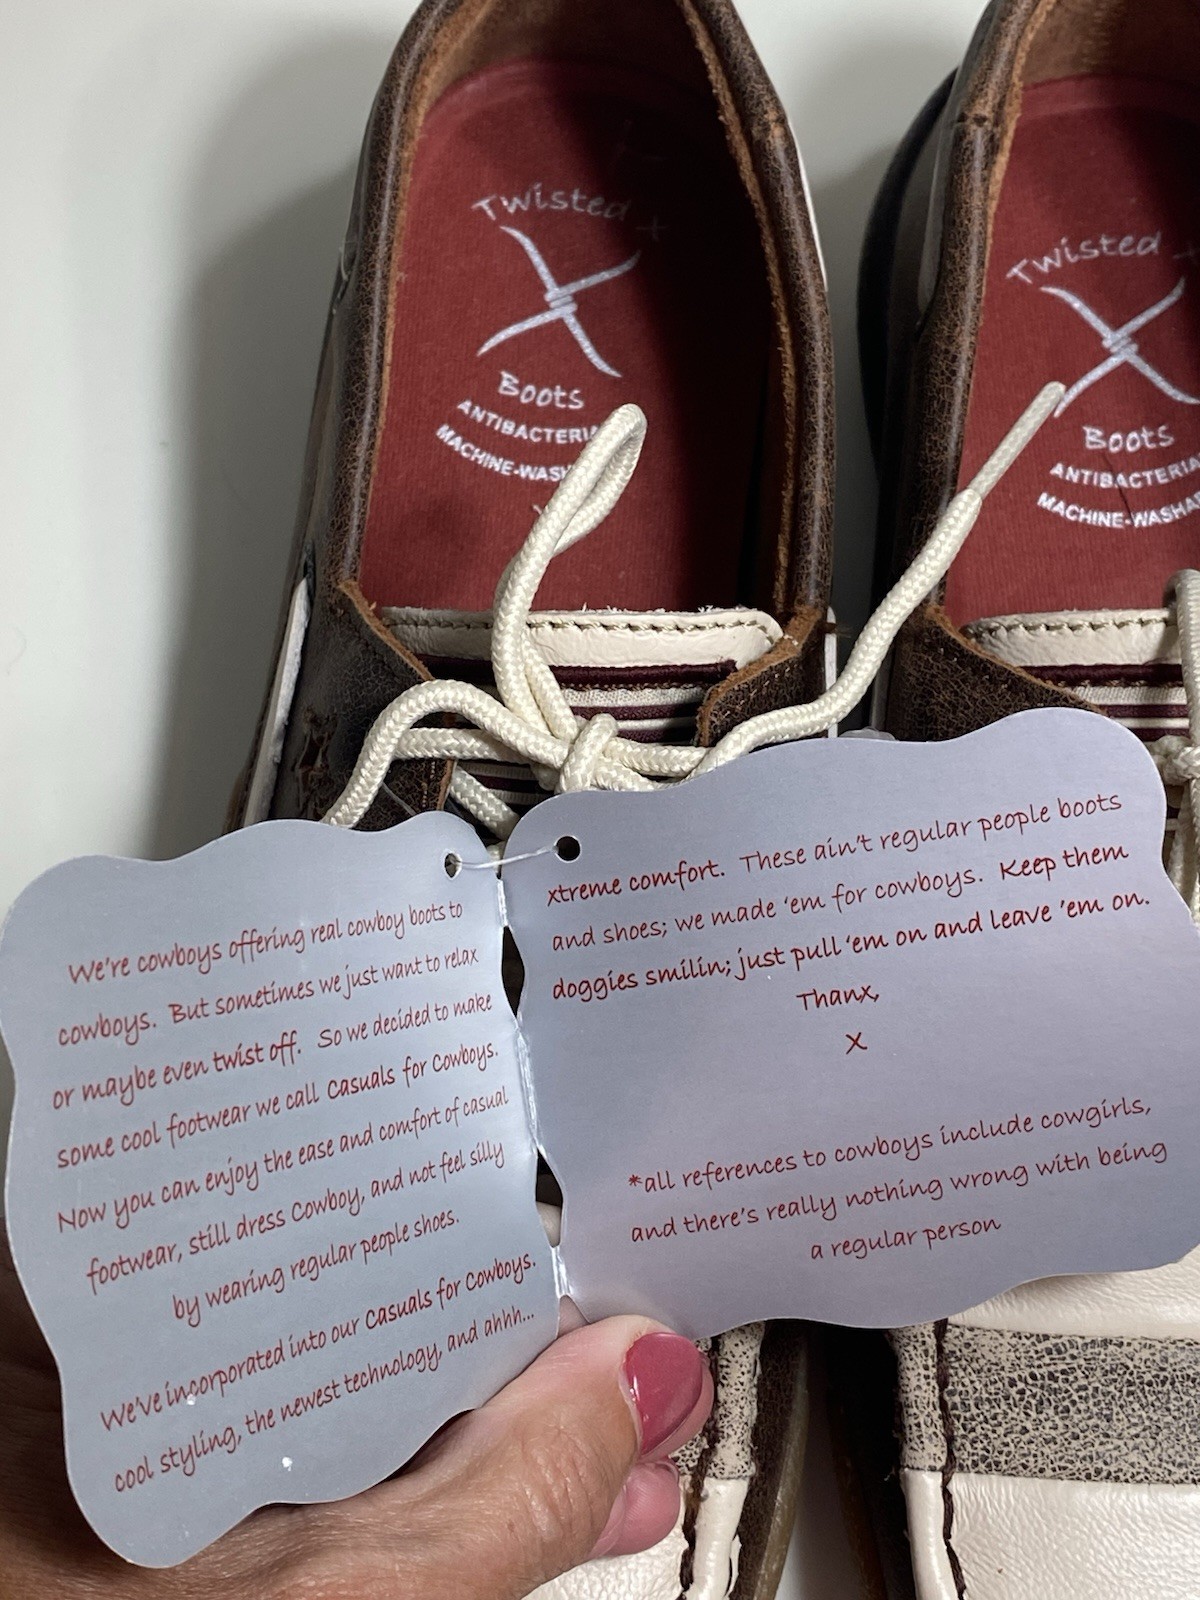 Twisted X
Boots
ANTIBACTERIA
MACHINE-WASH
Twisted X
Boots
ANTIBACTERIA
MACHINE-WASHA
We're cowboys offering real cowboy boots to
cowboys. But sometimes we just want to relax
or maybe even twist off. So we decided to make
some cool footwear we call Casuals for Cowboys.
Now you can enjoy the ease and comfort of casual
footwear, still dress Cowboy, and not feel silly
by wearing regular people shoes.
We've incorporated into our Casuals for Cowboys.
cool styling, the newest technology, and ahhh...
xtreme comfort. These ain't regular people boots
and shoes; we made 'em for cowboys. Keep them
doggies smilin; just pull 'em on and leave 'em on.
Thanx,
X
*all references to cowboys include cowgirls,
and there's really nothing wrong with being
a regular person